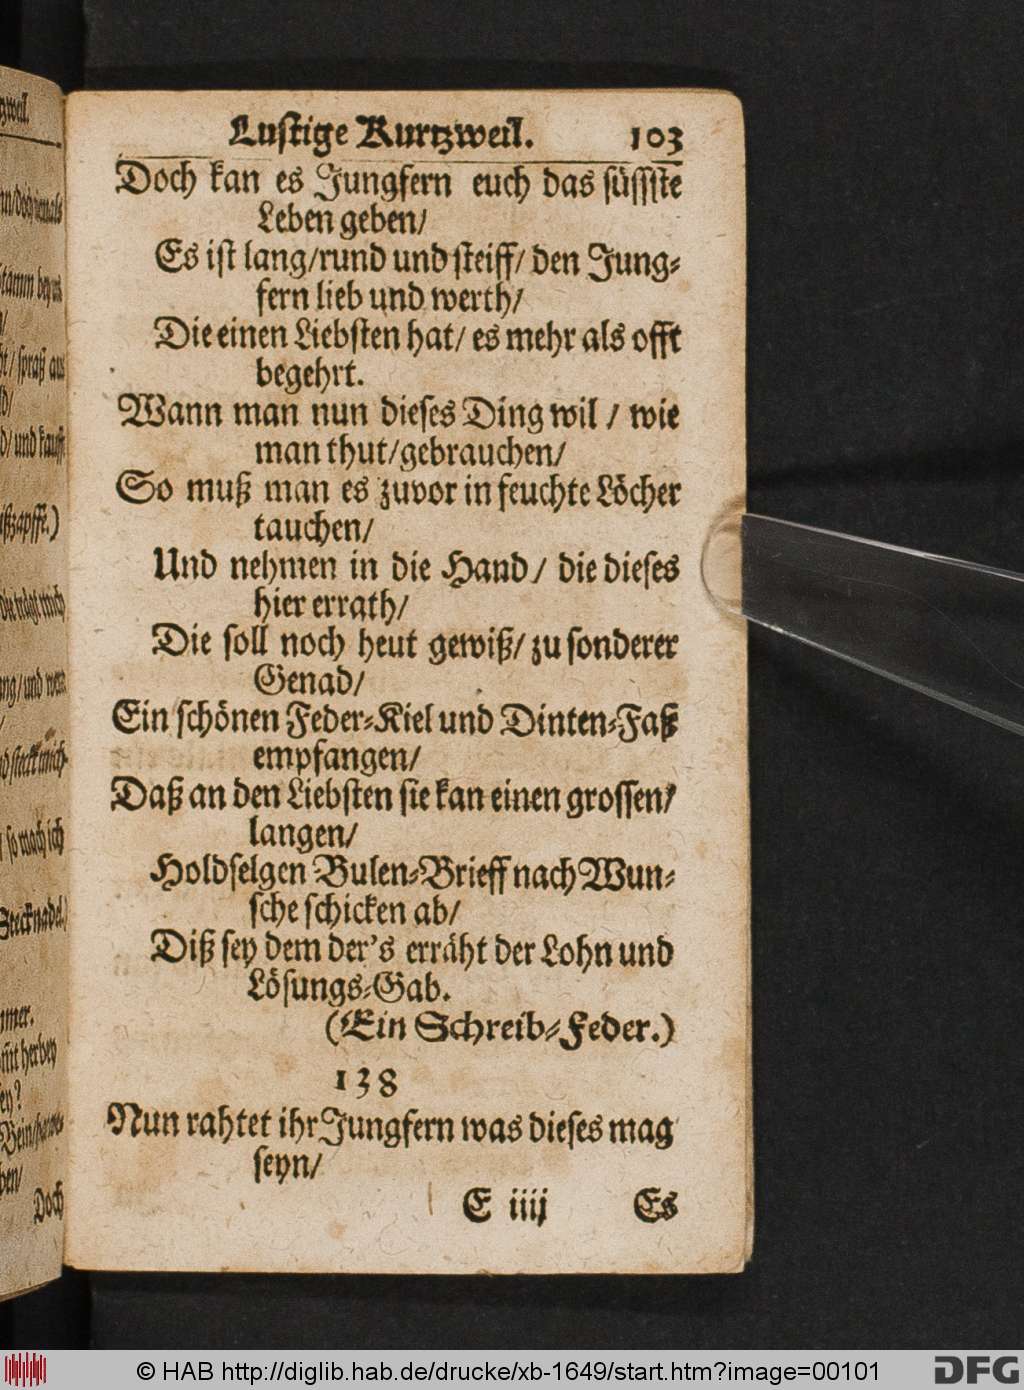 Lustige Kurtzweil. 103
Doch kan es Jungfern euch das süssste
Leben geben/
Es ist lang/rund und steiff/ den Jung-
fern lieb und werth/
Die einen Liebsten hat/ es mehr als offt
begehrt.
Wann man nun dieses Ding wil / wie
man thut/gebrauchen/
So muß man es zuvor in feuchte Löcher
tauchen/
Und nehmen in die Hand/ die dieses
hier errath/
Die soll noch heut gewiß/ zu sonderer
Genad/
Ein schönen Feder-Kiel und Dinten-Faß
empfangen/
Daß an den Liebsten sie kan einen grossen/
langen/
Holdselgen Bulen-Brieff nach Wun-
sche schicken ab/
Diß sey dem der's erräht der Lohn und
Lösungs-Gab.
(Ein Schreib-Feder.)
138
Nun rahtet ihr Jungfern was dieses mag
seyn/
E iiij Es
und kaufft
Stecknadel.)
Doch
© HAB http://diglib.hab.de/drucke/xb-1649/start.htm?image=00101
DFG